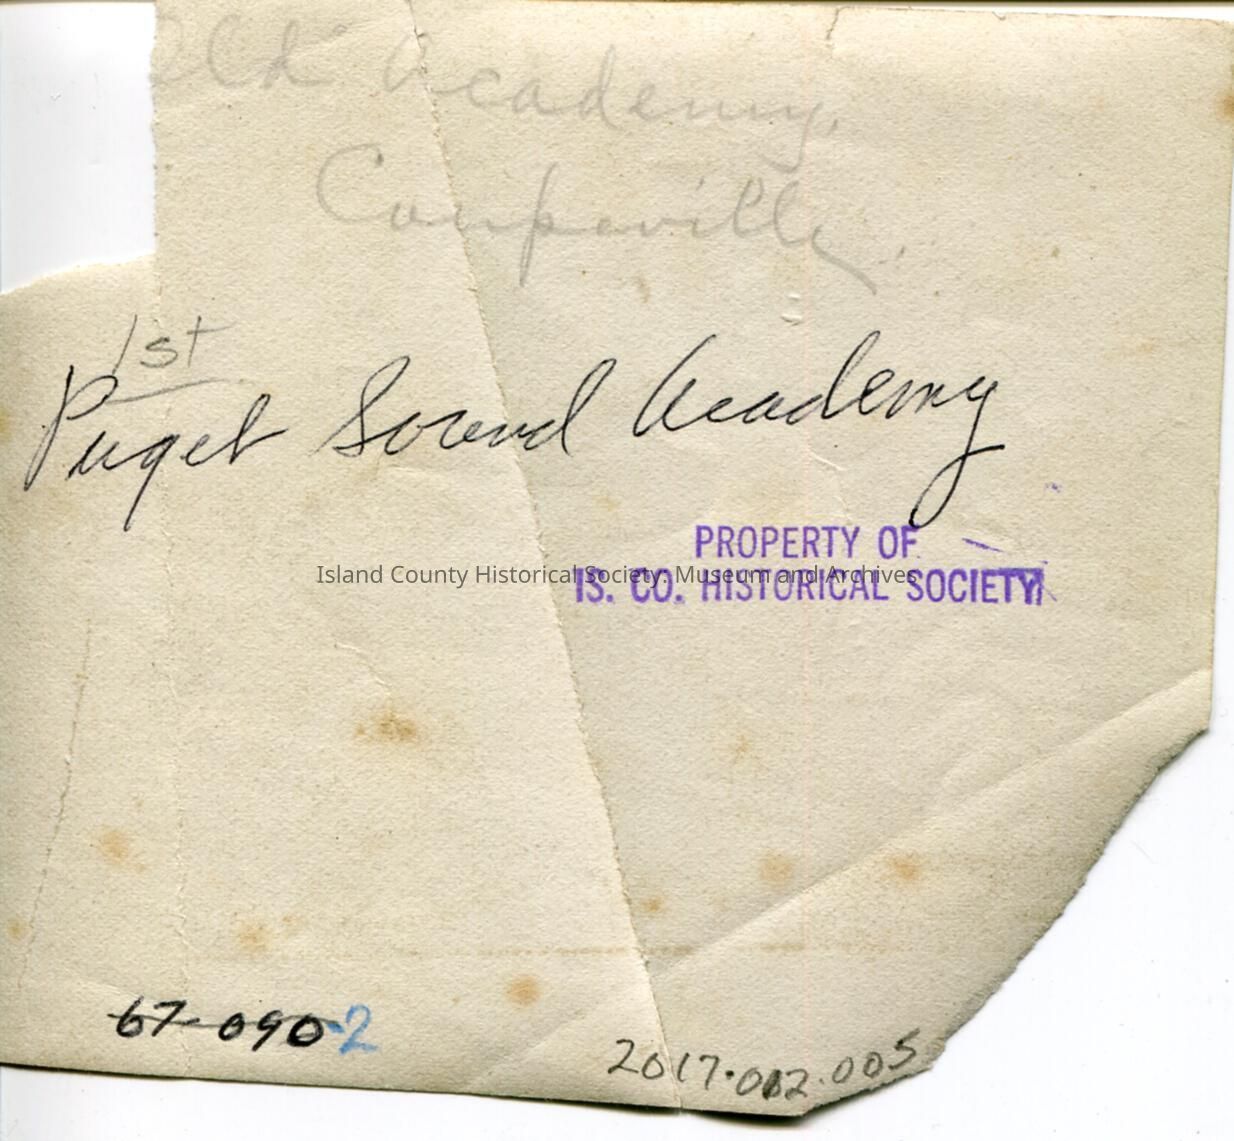 Old Academy.
Coupeville.
1st
Puget Sound Academy
PROPERTY OF
IS. CO. HISTORICAL SOCIETY
Island County Historical Society: Museum and Archives
67-090-2
2017.012.005